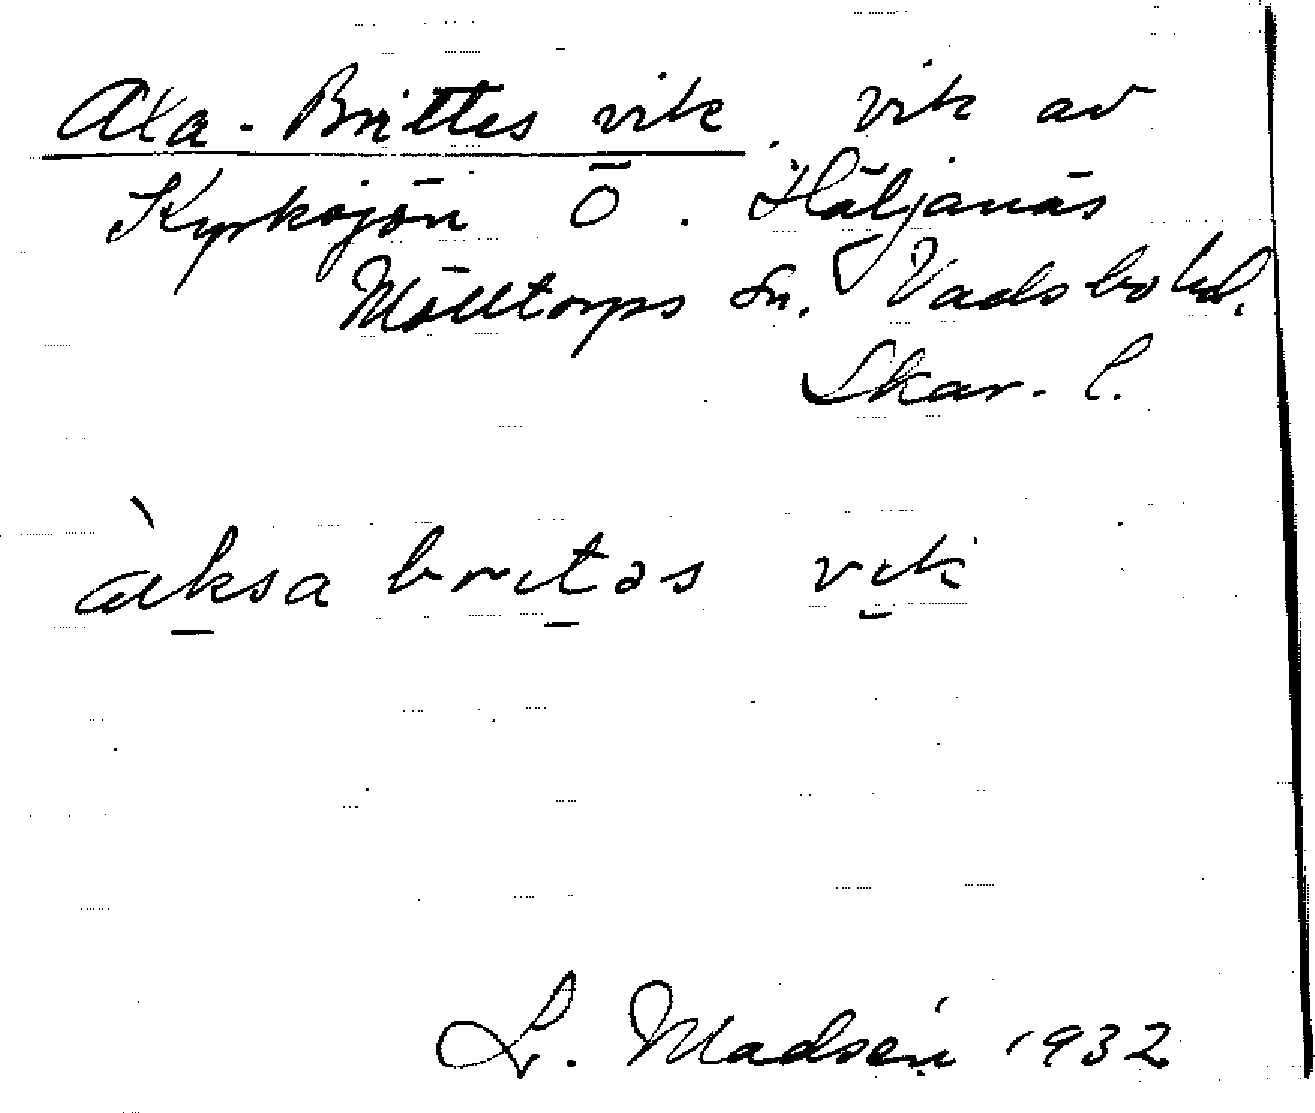 Axa-Brittes vik. vik av
Kyrksjön Ö. Häljanäs
Mölltorps sn. Vadsbo hd.
Skar. l.
àksa britəs vik
L. Madsén 1932